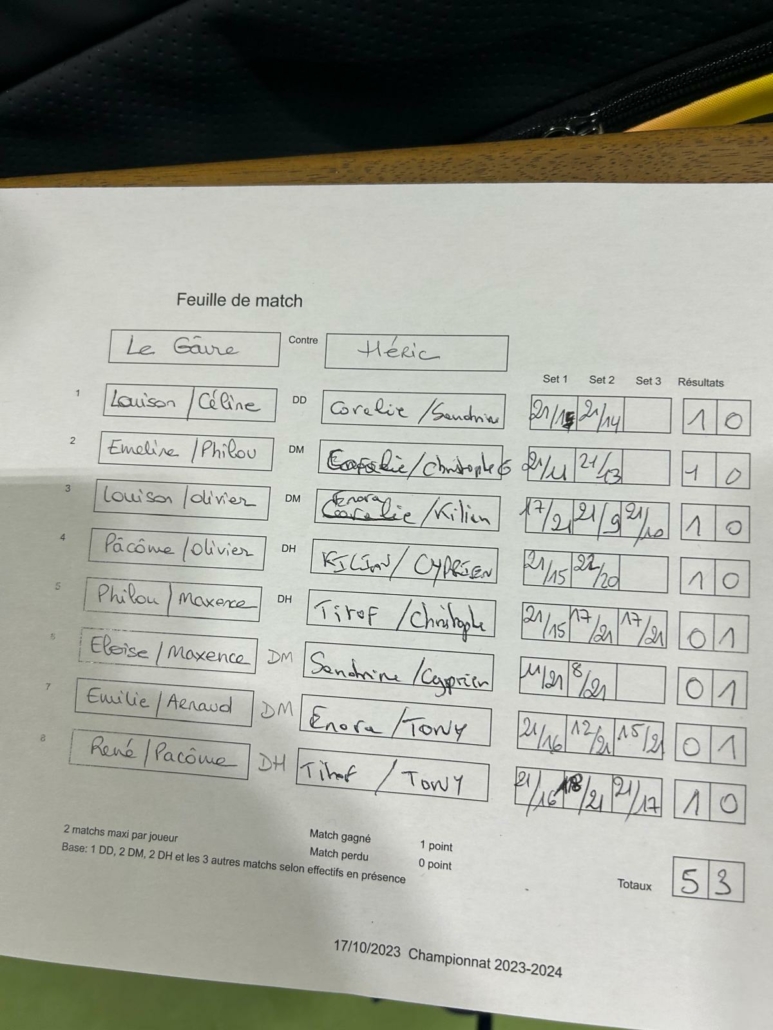 Feuille de match
Le Gâvre Contre Héric
Set 1 Set 2 Set 3 Résultats
1 Louison / Céline DD Coralie / Sandrine 21/15 21/14 1 0
2 Emeline / Philou DM Christophe 21/11 21/13 1 0
3 Louison / Olivier DM Enora / Kilian 17/21 21/9 21/10 1 0
4 Pâcôme / Olivier DH KILIAN / CYPRIEN 21/15 22/20 1 0
5 Philou / Maxence DH Titof / Christophe 21/15 17/21 17/21 0 1
6 Eloïse / Maxence DM Sandrine / Cyprien 11/21 8/21 0 1
7 Emilie / Arnaud DM Enora / TONY 21/16 12/21 15/21 0 1
8 René / Pacôme DH Titof / TONY 21/16 18/21 21/17 1 0
2 matchs maxi par joueur Match gagné 1 point
Base: 1 DD, 2 DM, 2 DH et les 3 autres matchs selon effectifs en présence Match perdu 0 point
Totaux 5 3
17/10/2023 Championnat 2023-2024